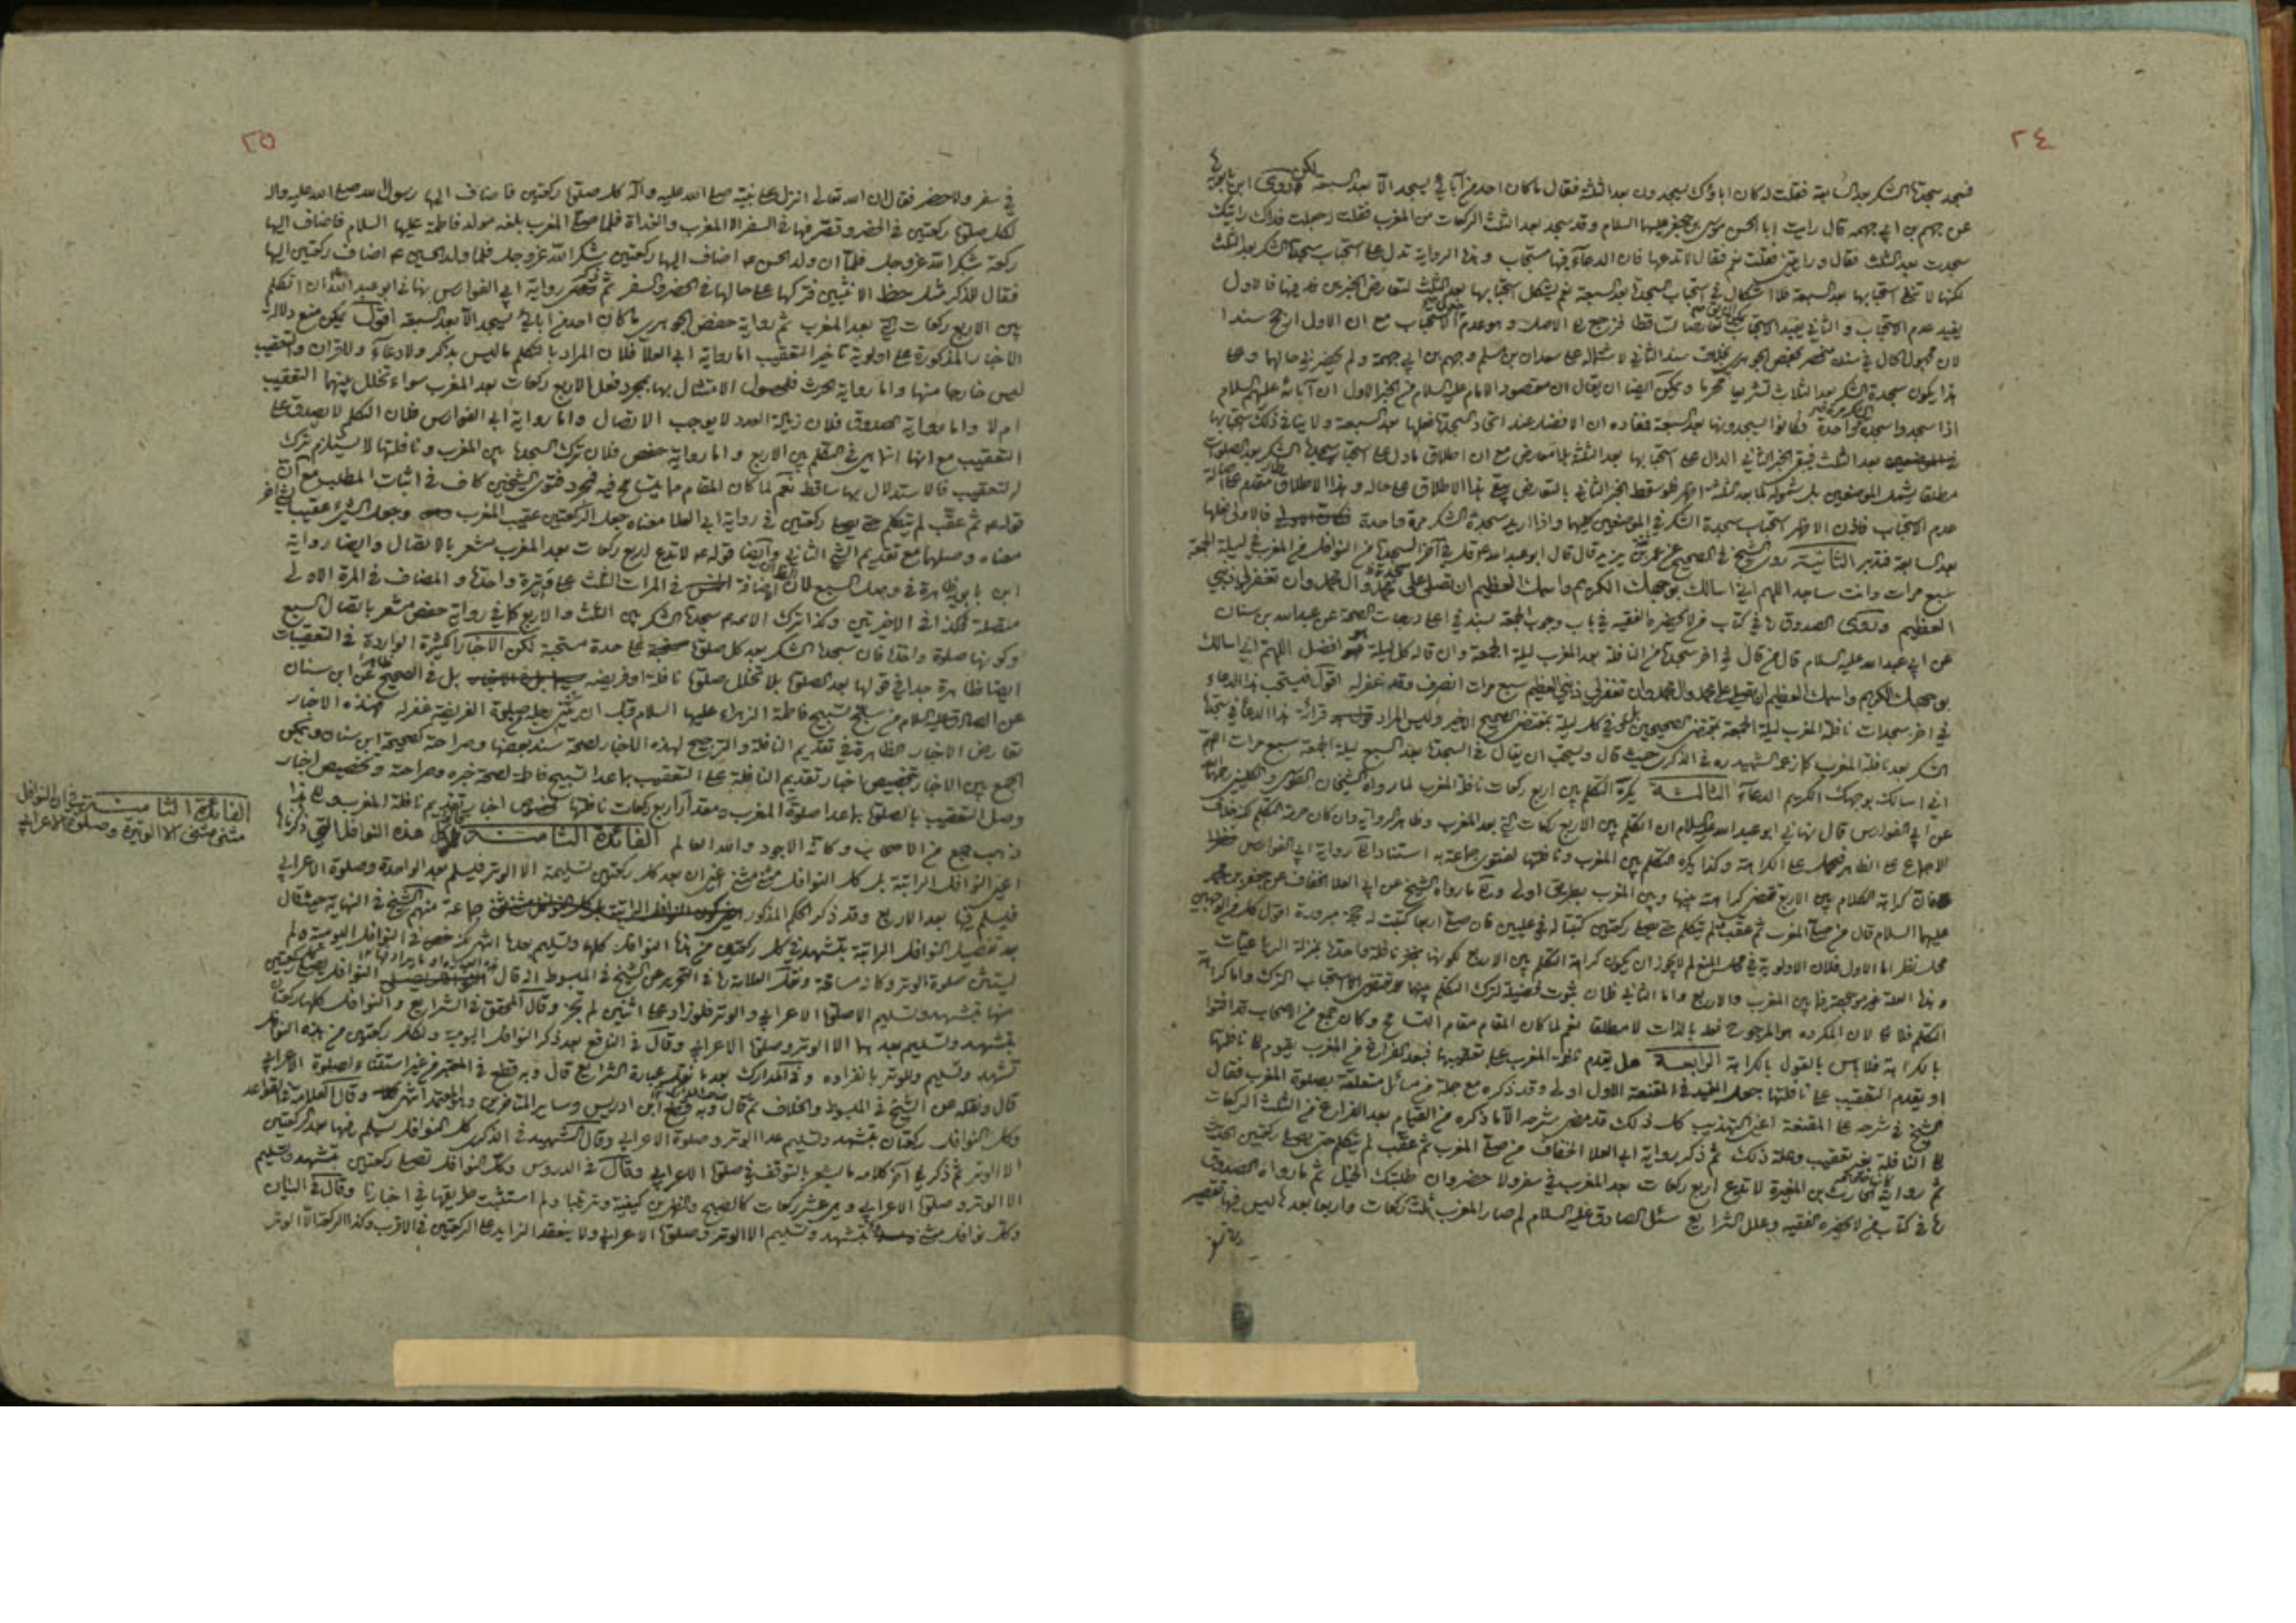 ٢٤
فسجد سجدتي الشكر بعد السابعة فقلت له كان اباؤك يسجدون بعد الثلثة فقال ما كان احد من آبائي يسجد الا بعد السبعة لكن روى ابن بابويه
عن جهم بن ابي جهمة قال رايت ابا الحسن موسى بن جعفر عليهما السلام وقد سجد بعد الثلث الركعات من المغرب فقلت له جعلت فداك رايتك
سجدت بعد الثلث فقال ورايتني فقلت نعم فقال لا تدعها فان الدعاء فيها مستجاب وهذه الرواية تدل على استحباب سجدة الشكر بعد الثلث
لكنها لا تنفي استحبابها بعد السبعة فلا اشكال في استحباب السجدة بعد السبعة نعم يشكل استحبابها بعد الثلث لتعارض الخبرين فيها فالاول
يفيد عدم الاستحباب والثاني يفيد الاستحباب تعارضا تساقطا فنرجع الى الاصل وهو عدم الاستحباب مع ان الاول ارجح سندا
لان مجهول الحال في سنده منحصر بحفص الجوهري بخلاف سند الثاني لاشتماله على سعدان بن مسلم وجهم بن ابي جهمة ولم يحضرني حالهما وعلى
هذا يكون سجدة الشكر بعد الثلاث تشريعا محرما ويمكن ايضا ان يقال ان مقصود الامام عليه السلام من الخبر الاول ان آبائه عليهم السلام
اذا سجدوا سجدة الشكر مرة واحدة كانوا يسجدونها بعد السبعة فمفاده ان الافضل عند اتحاد السجدة فعلها بعد السبعة ولا ينافي ذلك استحبابها
بعد الثلث فيبقى الخبر الثاني الدال على استحبابها بعد الثلثة بلا معارض مع ان اطلاق ما دل على استحباب سجدة الشكر بعد الصلوات
مطلقا يشمل الموضعين بل شموله لما بعد الثلثة اظهر فلو سقط الخبر الثاني بالتعارض يبقى هذا الاطلاق على حاله وهذا الاطلاق مقدم على اصالة
عدم الاستحباب فاذن الاظهر استحباب سجدة الشكر في الموضعين كليهما واذا اريد سجدة الشكر مرة واحدة فالاولى فعلها
بعد السابعة فتدبر الثانية روى الشيخ في الصحيح عن عمر بن يزيد قال قال ابو عبد الله ع قل في آخر السجدة من النوافل من المغرب في ليلة الجمعة
سبع مرات وانت ساجد اللهم اني اسالك بوجهك الكريم واسمك العظيم ان تصلي على محمد وآل محمد وان تغفر لي ذنبي
العظيم وروى الصدوق ره في كتاب من لا يحضره الفقيه في باب وجوب الجمعة بسند في اعلى درجات الصحة عن عبد الله بن سنان
عن ابي عبد الله عليه السلام قال من قال في اخر سجدة من النافلة بعد المغرب ليلة الجمعة وان قاله كل ليلة فهو افضل اللهم اني اسالك
بوجهك الكريم واسمك العظيم ان تصلي على محمد وآل محمد وان تغفر لي ذنبي العظيم سبع مرات انصرف وقد غفر له اقول فيستحب هذا الدعاء
في اخر سجدات نافلة المغرب ليلة الجمعة بمقتضى الصحيحين بل وفي كل ليلة بمقتضى الصحيح الاخير وليس المراد قرائة هذا الدعاء في سجدة
الشكر بعد نافلة المغرب كما زعمه الشهيد ره في الذكرى حيث قال ويستحب ان يقال في السجدة بعد السبع ليلة الجمعة سبع مرات اللهم
اني اسالك بوجهك الكريم الدعاء الثالثة يكره التكلم بين اربع ركعات نافلة المغرب لما رواه الشيخان الطوسي والكليني رحمهما الله
عن ابي الفوارس قال نهاني ابو عبد الله عليه السلام ان اتكلم بين الاربع ركعات التي بعد المغرب وظاهر الرواية وان كان حرمة التكلم لكن خلاف
الاجماع على الظاهر فيحمل على الكراهة وكذا يكره التكلم بين المغرب ونافلتها لفتوى جماعة به استنادا الى رواية ابي الفوارس
فان كراهة الكلام بين الاربع تقتضي كراهته بينها وبين المغرب بطريق اولى والى ما رواه الشيخ عن ابي العلا الخفاف عن جعفر بن محمد
عليهما السلام قال من صلى المغرب ثم عقب ولم يتكلم حتى يصلي ركعتين كتبتا له في عليين فان صلى اربعا كتبت له حجة مبرورة اقول كل من الوجهين
محل نظر اما الاول فلان الاولوية في محل المنع لم لا يجوز ان يكون كراهة التكلم بين الاربع لكونها بمنزلة نافلة واحدة بمنزلة الرباعيات
وهذه العلة غير موجودة فيما بين المغرب والاربع واما الثاني فلان ثبوت فضيلة لترك التكلم بينهما لا يقتضي الا استحباب الترك واما كراهة
التكلم فلا لان المكروه هو المرجوح فعلا بالذات لا مطلقا نعم لما كان المقام مقام التسامح وكان جمع من الاصحاب قد افتوا
بالكراهة فلا باس بالقول بالكراهة الرابعة هل يقدم نافلة المغرب على تعقيبها فبعد الفراغ من المغرب يقوم الى نافلتها
او يقدم التعقيب على نافلتها جعل المفيد في المقنعة الاول اولى وقد ذكره مع جملة من مسائل متعلقة بصلوة المغرب فقال
الشيخ في شرحه على المقنعة اعني التهذيب كل ذلك قد مضى شرحه الا ما ذكره من القيام بعد الفراغ من الثلث الركعات
الى النافلة بغير تعقيب وعلة ذلك ثم ذكر رواية ابي العلا الخفاف من صلى المغرب ثم عقب لم يتكلم حتى يصلي ركعتين الحديث
ثم رواية الحارث بن المغيرة لا تدع اربع ركعات بعد المغرب في سفر ولا حضر وان طلبتك الخيل ثم ما رواه الصدوق
ره في كتاب من لا يحضره الفقيه وعلل الشرايع سئل الصادق عليه السلام لم صار المغرب ثلث ركعات واربعا بعدها ليس فيها تقصير
٢٥
في سفر ولا حضر فقال ان الله تعالى انزل على نبيه صلى الله عليه وآله كل صلوة ركعتين فاضاف اليها رسول الله صلى الله عليه وآله
لكل صلوة ركعتين في الحضر وقصر فيها في السفر الا المغرب والغداة فلما صلى المغرب بلغه مولد فاطمة عليها السلام فاضاف اليها
ركعة شكرا لله عز وجل فلما ان ولد الحسن ع اضاف اليها ركعتين شكرا لله عز وجل فلما ولد الحسين ع اضاف ركعتين اليها
فقال للذكر مثل حظ الانثيين فتركها على حالها في الحضر والسفر ثم ذكر رواية ابي الفوارس نهاني ابو عبد الله ان اتكلم
بين الاربع ركعات التي بعد المغرب ثم رواية حفص الجوهري ما كان احد من ابائي يسجد الا بعد السبعة اقول يمكن منع دلالة
الاخبار المذكورة على اولوية تاخير التعقيب اما رواية ابي العلا فلان المراد بالتكلم ما ليس بذكر ولا دعاء ولا قران والتعقيب
ليس خارجا منها واما رواية الحرث فلحصول الامتثال بها بمجرد فعل الاربع ركعات بعد المغرب سواء تخلل بينهما التعقيب
ام لا واما رواية الصدوق فلان زيادة العدد لا يوجب الاتصال واما رواية ابي الفوارس فلان التكلم لا يصدق على
التعقيب مع انها انما هي في التكلم بين الاربع واما رواية حفص فلان ترك السجدة بين المغرب ونافلتها لا يستلزم ترك
التعقيب فالاستدلال بها ساقط نعم لما كان المقام مما يتسامح فيه فمجرد فتوى الشيخين كاف في اثبات المطلب مع ان
قوله ع ثم عقب لم يتكلم حتى يصلي ركعتين في رواية ابي العلا معناه جعل الركعتين عقيب المغرب وجعل الشيء عقيب شيء اخر
معناه وصلهما مع تقديم الشيء الثاني وايضا قوله ع لا تدع اربع ركعات بعد المغرب مشعر بالاتصال وايضا رواية
ابن بابويه ظاهرة في وصل السبع لان اضافة في المرات الثلث على وتيرة واحدة والمضاف في المرة الاولى
متصلة فكذا في الاخيرتين وكذا ترك الامام سجدة الشكر بين الثلث والاربع كما في رواية حفص مشعر باتصال السبع
وكونها صلوة واحدة فان سجدة الشكر بعد كل صلوة على حدة مستحبة لكن الاخبار الكثيرة الواردة في التعقيبات
ايضا ظاهرة جدا في قولها بعد الصلوة بلا تخلل صلوة نافلة او فريضة بل في الصحيح عن ابن سنان
عن الصادق عليه السلام من سبح تسبيح فاطمة الزهراء عليها السلام قبل ان يثني رجليه من صلوة الفريضة غفر له فهذه الاخبار
تعارض الاخبار الظاهرة في تقديم النافلة والترجيح لهذه الاخبار لصحة سند بعضها وصراحة صحيحة ابن سنان ويمكن
الجمع بين الاخبار بتخصيص اخبار تقديم النافلة على التعقيب بما عدا تسبيح فاطمة لصحة خبره وصراحته وتخصيص اخبار
وصل التعقيب بالصلوة بما عدا صلوة المغرب ومقدار اربع ركعات نافلتها لخصوص اخبار تقديم نافلة المغرب والى هذا
ذهب جمع من الاصحاب وكانه الاجود والله العالم الفائدة الثامنة كل هذه النوافل التي ذكرناها
اعني النوافل الراتبة بل كل النوافل مثنى مثنى اعني ان بعد كل ركعتين تسليمة الا الوتر فيسلم بعد الواحدة وصلوة الاعرابي
فيسلم فيها بعد الاربع وقد ذكر الحكم المذكور جماعة منهم الشيخ في النهاية حيث قال
بعد تفصيل النوافل الراتبة يتشهد في كل ركعتين من هذه النوافل كلها ويسلم بعدها انتهى لكنه خص في النوافل اليومية ولم
يستثن صلوة الوتر وكانه مسامحة ونقل العلامة ره في التحرير عن الشيخ في المبسوط انه قال النوافل يصلي كل ركعتين
منها بتشهد وتسليم الا صلوة الاعرابي والوتر فلو زاد على اثنتين لم يجز وقال المحقق في الشرايع والنوافل كلها ركعتان
بتشهد وتسليم بعدهما الا الوتر وصلوة الاعرابي وقال في النافع بعد ذكر النوافل اليومية ولكل ركعتين من هذه النوافل
تشهد وتسليم وللوتر بانفراده وفي المدارك بعد ما نقل عبارة الشرايع قال وبه قطع في المعتبر من غير استثناء لصلوة الاعرابي
قال ونقله عن الشيخ في المبسوط والخلاف ثم قال وبه قطع ابن ادريس وساير المتاخرين وهو المعتمد انتهى وقال العلامة في القواعد
وكل النوافل ركعتان بتشهد وتسليم عدا الوتر وصلوة الاعرابي وقال الشهيد في الذكرى كل النوافل يسلم فيها بعد الركعتين
الا الوتر ثم ذكر في آخر كلامه ما يشعر بالتوقف في صلوة الاعرابي وقال في الدروس وكل النوافل تصلى ركعتين بتشهد وتسليم
الا الوتر وصلوة الاعرابي وهي عشر ركعات كالصبح والظهرين كيفية وترتيبا ولم استثبت طريقها في اخبارنا وقال في البيان
وكل نوافل مثنى بتشهد وتسليم الا الوتر وصلوة الاعرابي ولا ينعقد الزايد على الركعتين في الاقرب وكذا الركعة الا الوتر
الفائدة الثامنة في ان النوافل
مثنى مثنى الا الوتيرة وصلوة الاعرابي